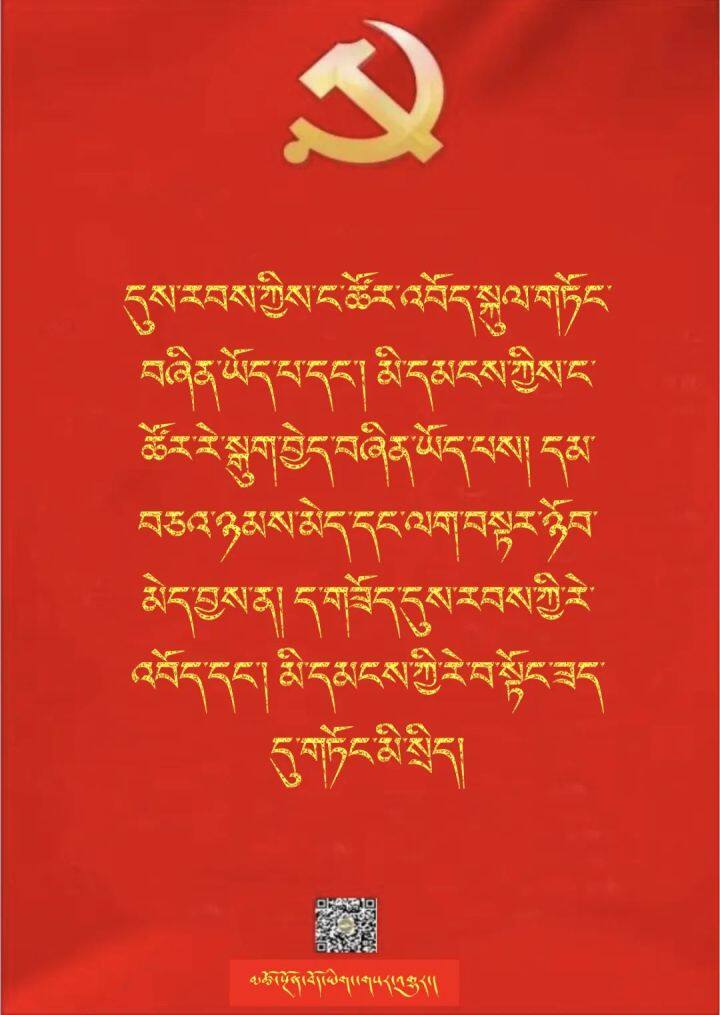 དུས་རབས་ཀྱིས་ང་ཚོར་འབོད་སྐུལ་གཏོང་
བཞིན་ཡོད་པ་དང་། མི་དམངས་ཀྱིས་ང་
ཚོར་རེ་སྒུག་བྱེད་བཞིན་ཡོད་པས། དམ་
བཅའ་ཉམས་མེད་དང་ལག་བསྟར་ཉོབ་
མེད་བྱས་ན། ད་གཟོད་དུས་རབས་ཀྱི་རེ་
འབོད་དང་། མི་དམངས་ཀྱི་རེ་བ་སྟོང་ཟད་
དུ་གཏོང་མི་སྲིད།